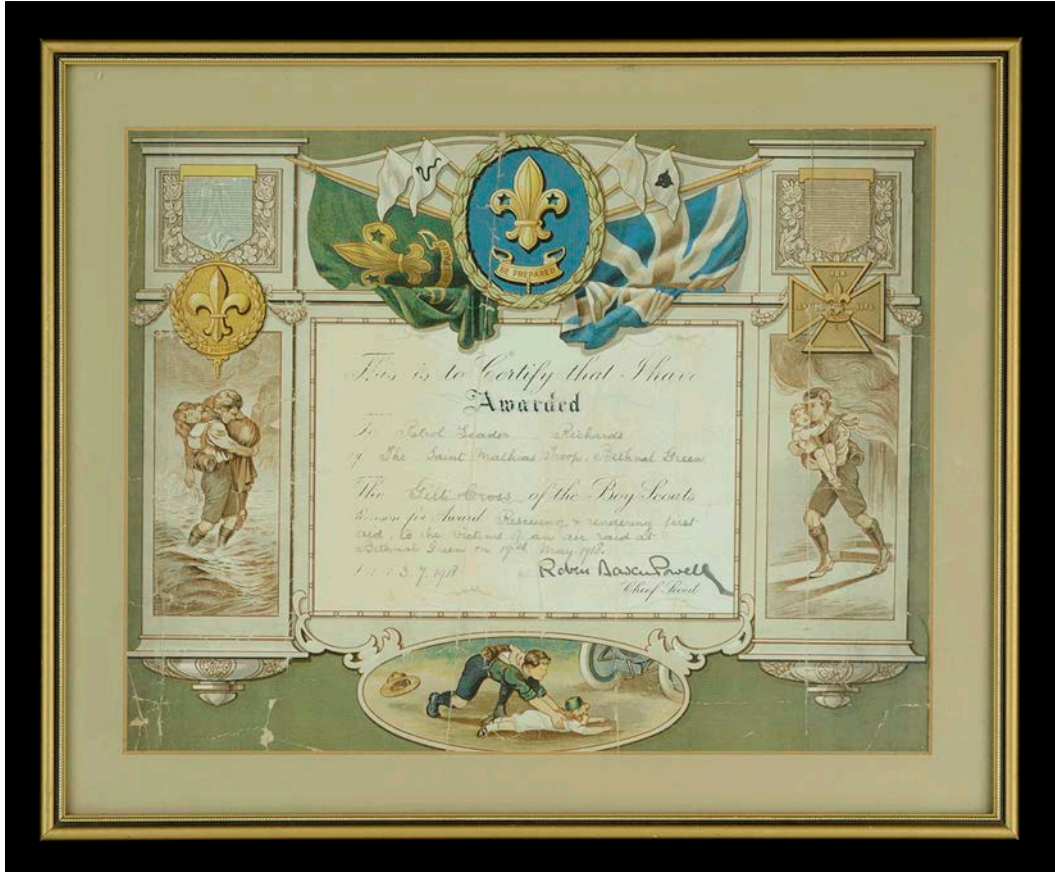 BE PREPARED
This is to Certify that I have
Awarded
To Patrol Leader Richards
of The Saint Mathias Troop. Bethnal Green
The Gilt Cross of the Boy Scouts
Reason for Award Rescuing & rendering first
aid, to the victims of an air raid at
Bethnal Green on 19th May 1918.
3.7.1918
Robert Baden Powell
Chief Scout